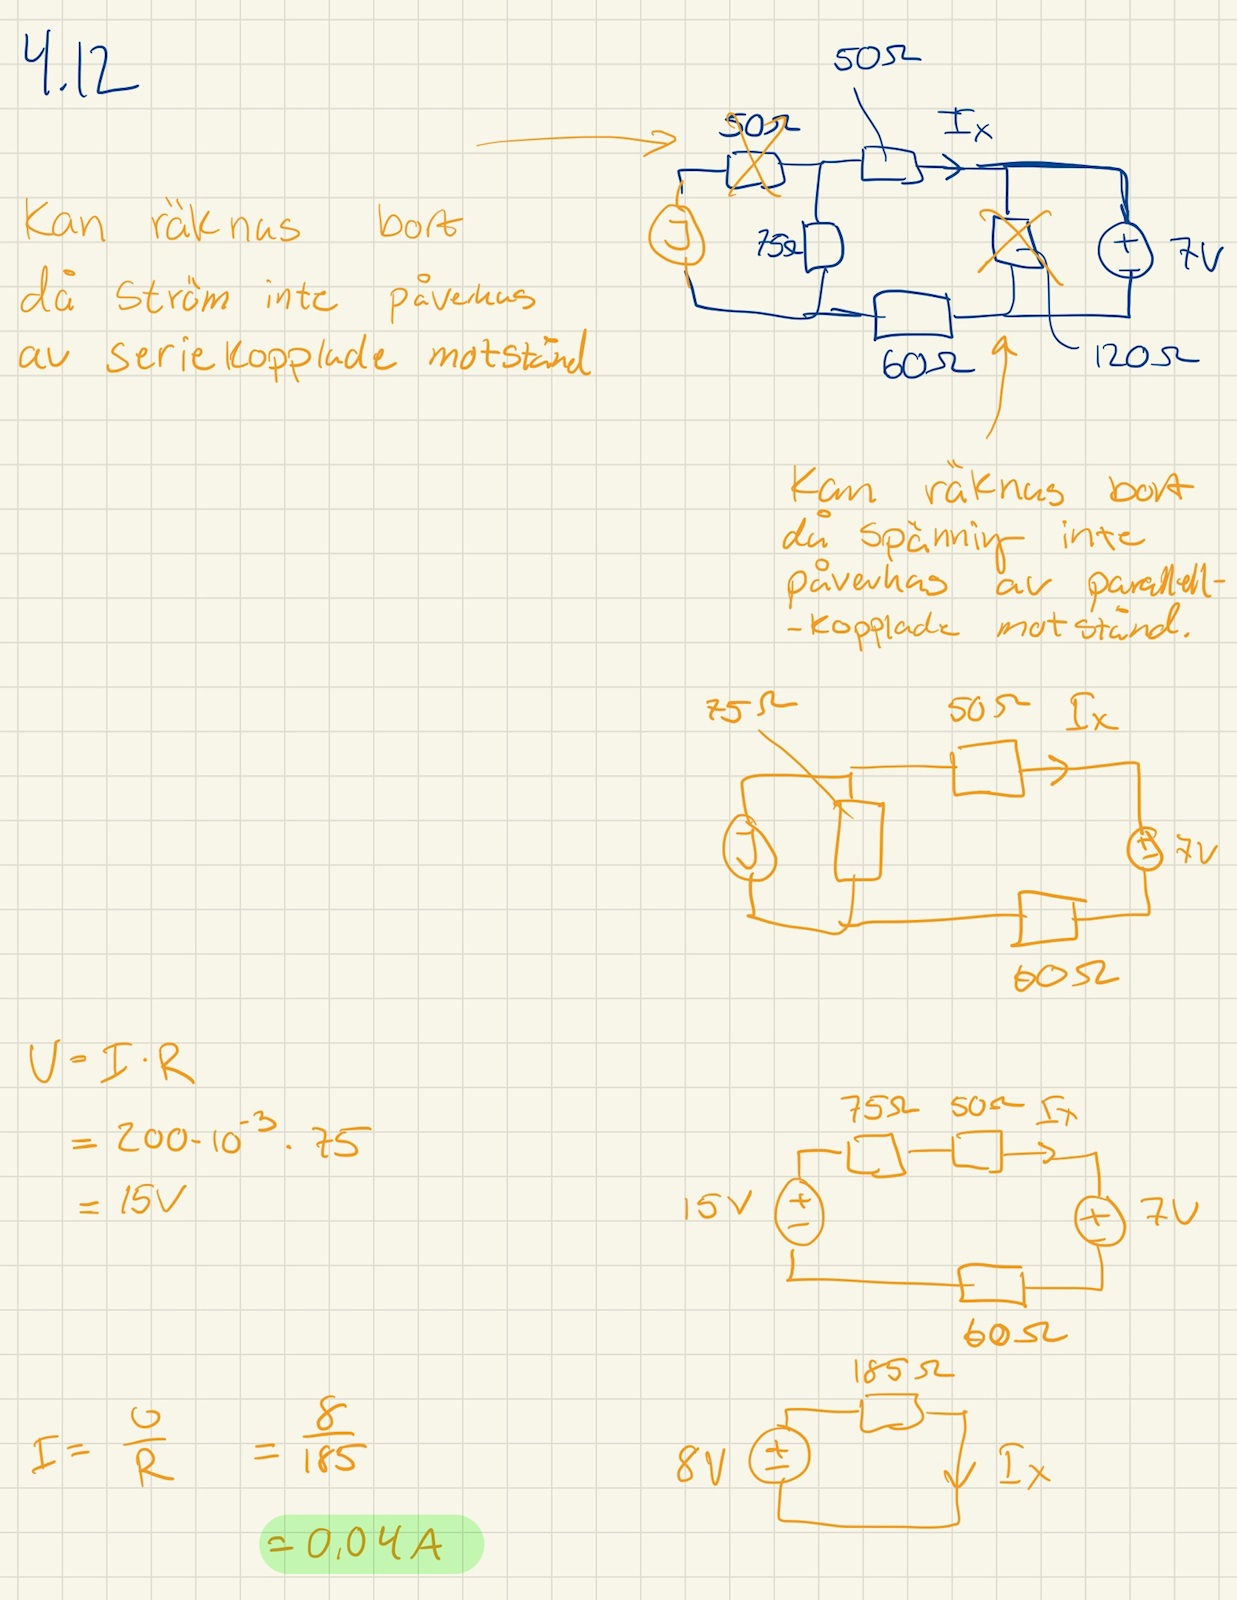 4.12
50Ω
50Ω
Ix
J
75Ω
+
7V
60Ω
120Ω
Kan räknas bort
då ström inte påverkas
av seriekopplade motstånd
Kan räknas bort
då spänning inte
påverkas av parallell-
-kopplade motstånd.
75Ω
50Ω
Ix
J
7V
60Ω
U = I · R
= 200·10⁻³ · 75
= 15V
75Ω 50Ω Ix
15V
+
−
+
−
7V
60Ω
185Ω
I = U/R = 8/185
8V
+
−
Ix
= 0,04A